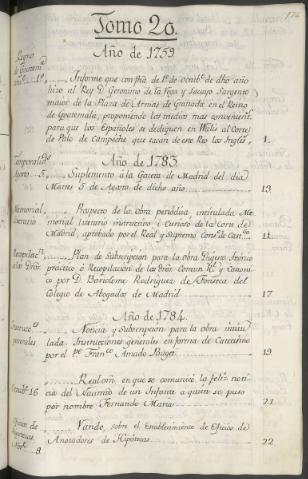 Tomo 20.
Año de 1759
Informe que con fha. de 1º de Octub.e de dho año
hizo al Rey D. Geronimo de la Vega y Sarg.to
mayor de la Plaza de Armas de Granada en el Reino
de Goatemala, proponiendo los medios mas convenient.s
para que los Españoles se dediquen en Wallis al Corte
de Palo de Campeche que sacan de ese Rio los Ingles.s 1.
Año de 1783.
Suplemento á la Gazeta de Madrid del dia
Martes 5 de Agosto de dicho año 13
Memorial
literario
Prospecto de la obra periodica intitulada Me-
morial literario instructivo y curioso de la Corte de
Madrid, aprobado por el Real y Supremo Cons.º de Cast.lla 14
Plan de Subscripcion para la obra Digesto teorico
practico ó Recopilacion de los Dros. Comun R.l y Canoni-
co por D. Bartolome Rodriguez de Fonseca del
Colegio de Abogados de Madrid 17
Año de 1784.
Noticia y Subscripcion para la obra intitu-
lada Instrucciones generales en forma de Catecismo
por el P.e Fran.co Amado Puget 19
Real orn en que se comunica la feliz noti-
cia del Nacimto de un Infante a quien se puso
por nombre Fernando Maria 21
Vando, sobre el Establecimiento de Oficios de
Anotadores de Hipotecas 22